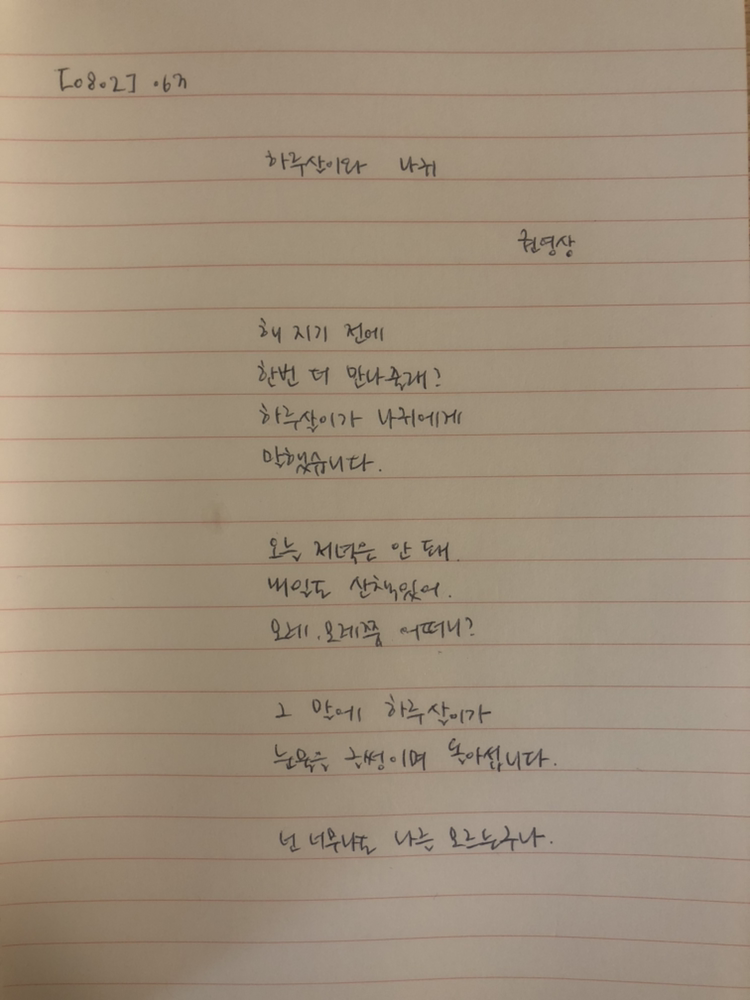 [0802] .6지
하루살이와 나귀
권영상
해 지기 전에
한번 더 만나줄래?
하루살이가 나귀에게
말했습니다.
오늘 저녁은 안 돼.
내일도 산책있어.
모레, 모레쯤 어떠니?
그 말에 하루살이가
눈물을 글썽이며 돌아섭니다.
넌 너무나도 나를 모르는구나.